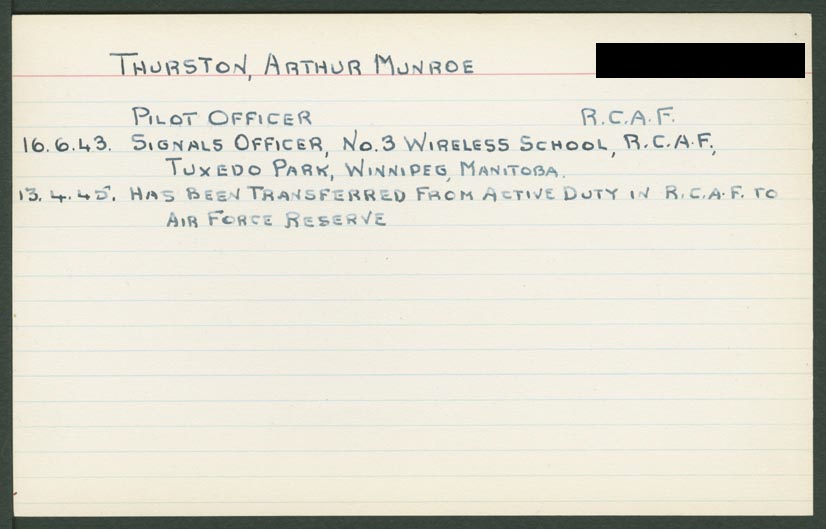 THURSTON, ARTHUR MUNROE
PILOT OFFICER R.C.A.F.
16.6.43. SIGNALS OFFICER, NO.3 WIRELESS SCHOOL, R.C.A.F.,
TUXEDO PARK, WINNIPEG, MANITOBA.
13.4.45. HAS BEEN TRANSFERRED FROM ACTIVE DUTY IN R.C.A.F. TO
AIR FORCE RESERVE